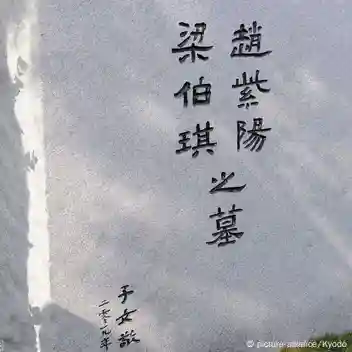 趙紫陽
梁伯琪
之墓
子女敬
二零一九年
© picture-alliance/Kyodo